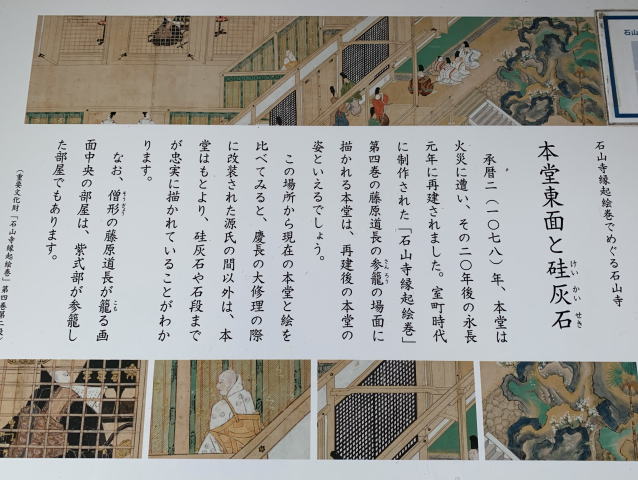 石山寺縁起絵巻でめぐる石山寺
本堂東面と硅灰石
けい かい せき
承暦二(一〇七八)年、本堂は
火災に遭い、その二〇年後の永長
元年に再建されました。室町時代
に制作された「石山寺縁起絵巻」
第四巻の藤原道長の参籠の場面に
さんろう
描かれる本堂は、再建後の本堂の
姿といえるでしょう。
この場所から現在の本堂と絵を
比べてみると、慶長の大修理の際
に改装された源氏の間以外は、本
堂はもとより、硅灰石や石段まで
が忠実に描かれていることがわか
ります。
なお、僧形の藤原道長が籠る画
そうぎょう
こも
面中央の部屋は、紫式部が参籠し
た部屋でもあります。
(重要文化財「石山寺縁起絵巻」第四巻第二段)
石山